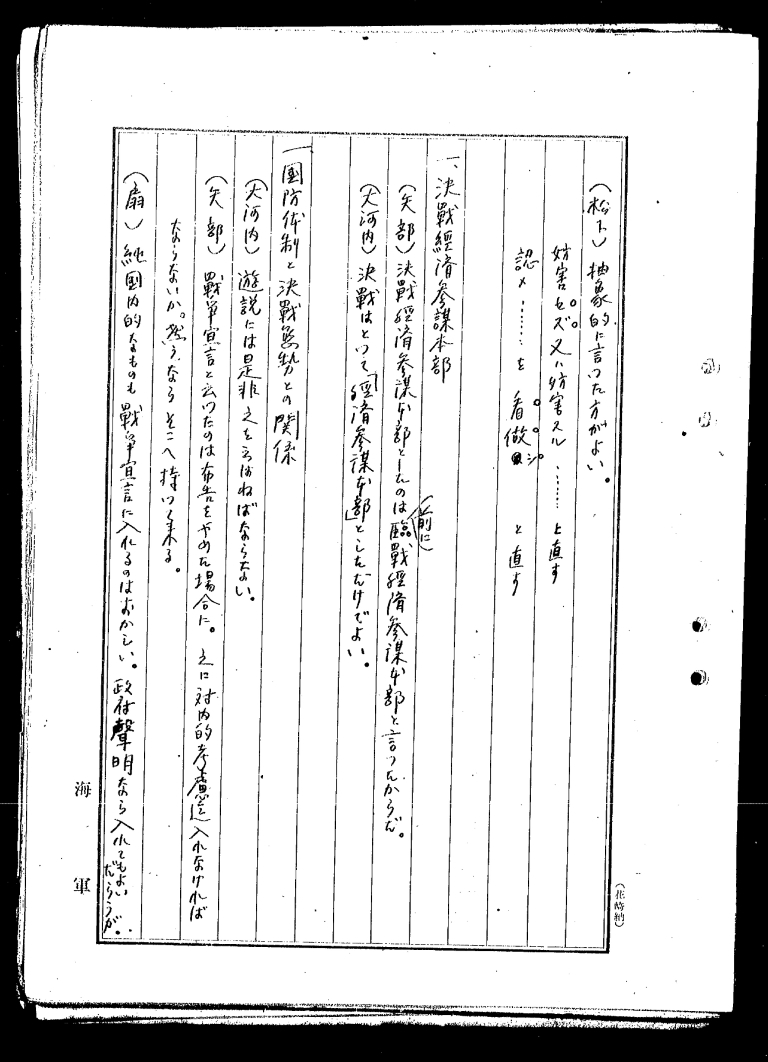 (松下) 抽象的に言つた方がよい。
妨害セズ又ハ妨害スル……と直す
認メ……を 看做シ と直す
一、決戰經済参謀本部
(矢部) 決戰經済参謀本部としたのは(前に)臨戰經済参謀本部と言つたからだ。
(大河内) 決戰はとつて「經済参謀本部」としただけでよい。
一 國防体制と決戰態勢との関係
(大河内) 遊説には是非之を云はねばならない。
(矢部) 戰爭宣言と云つたのは布告をやめた場合に。之に対内的考慮迄入れなければ
ならないか。然うならそこへ持つて來る。
(扇) 純國内的なものも戰爭宣言に入れるのはおかしい。政府聲明なら入れてもよい
だらうが。
海軍